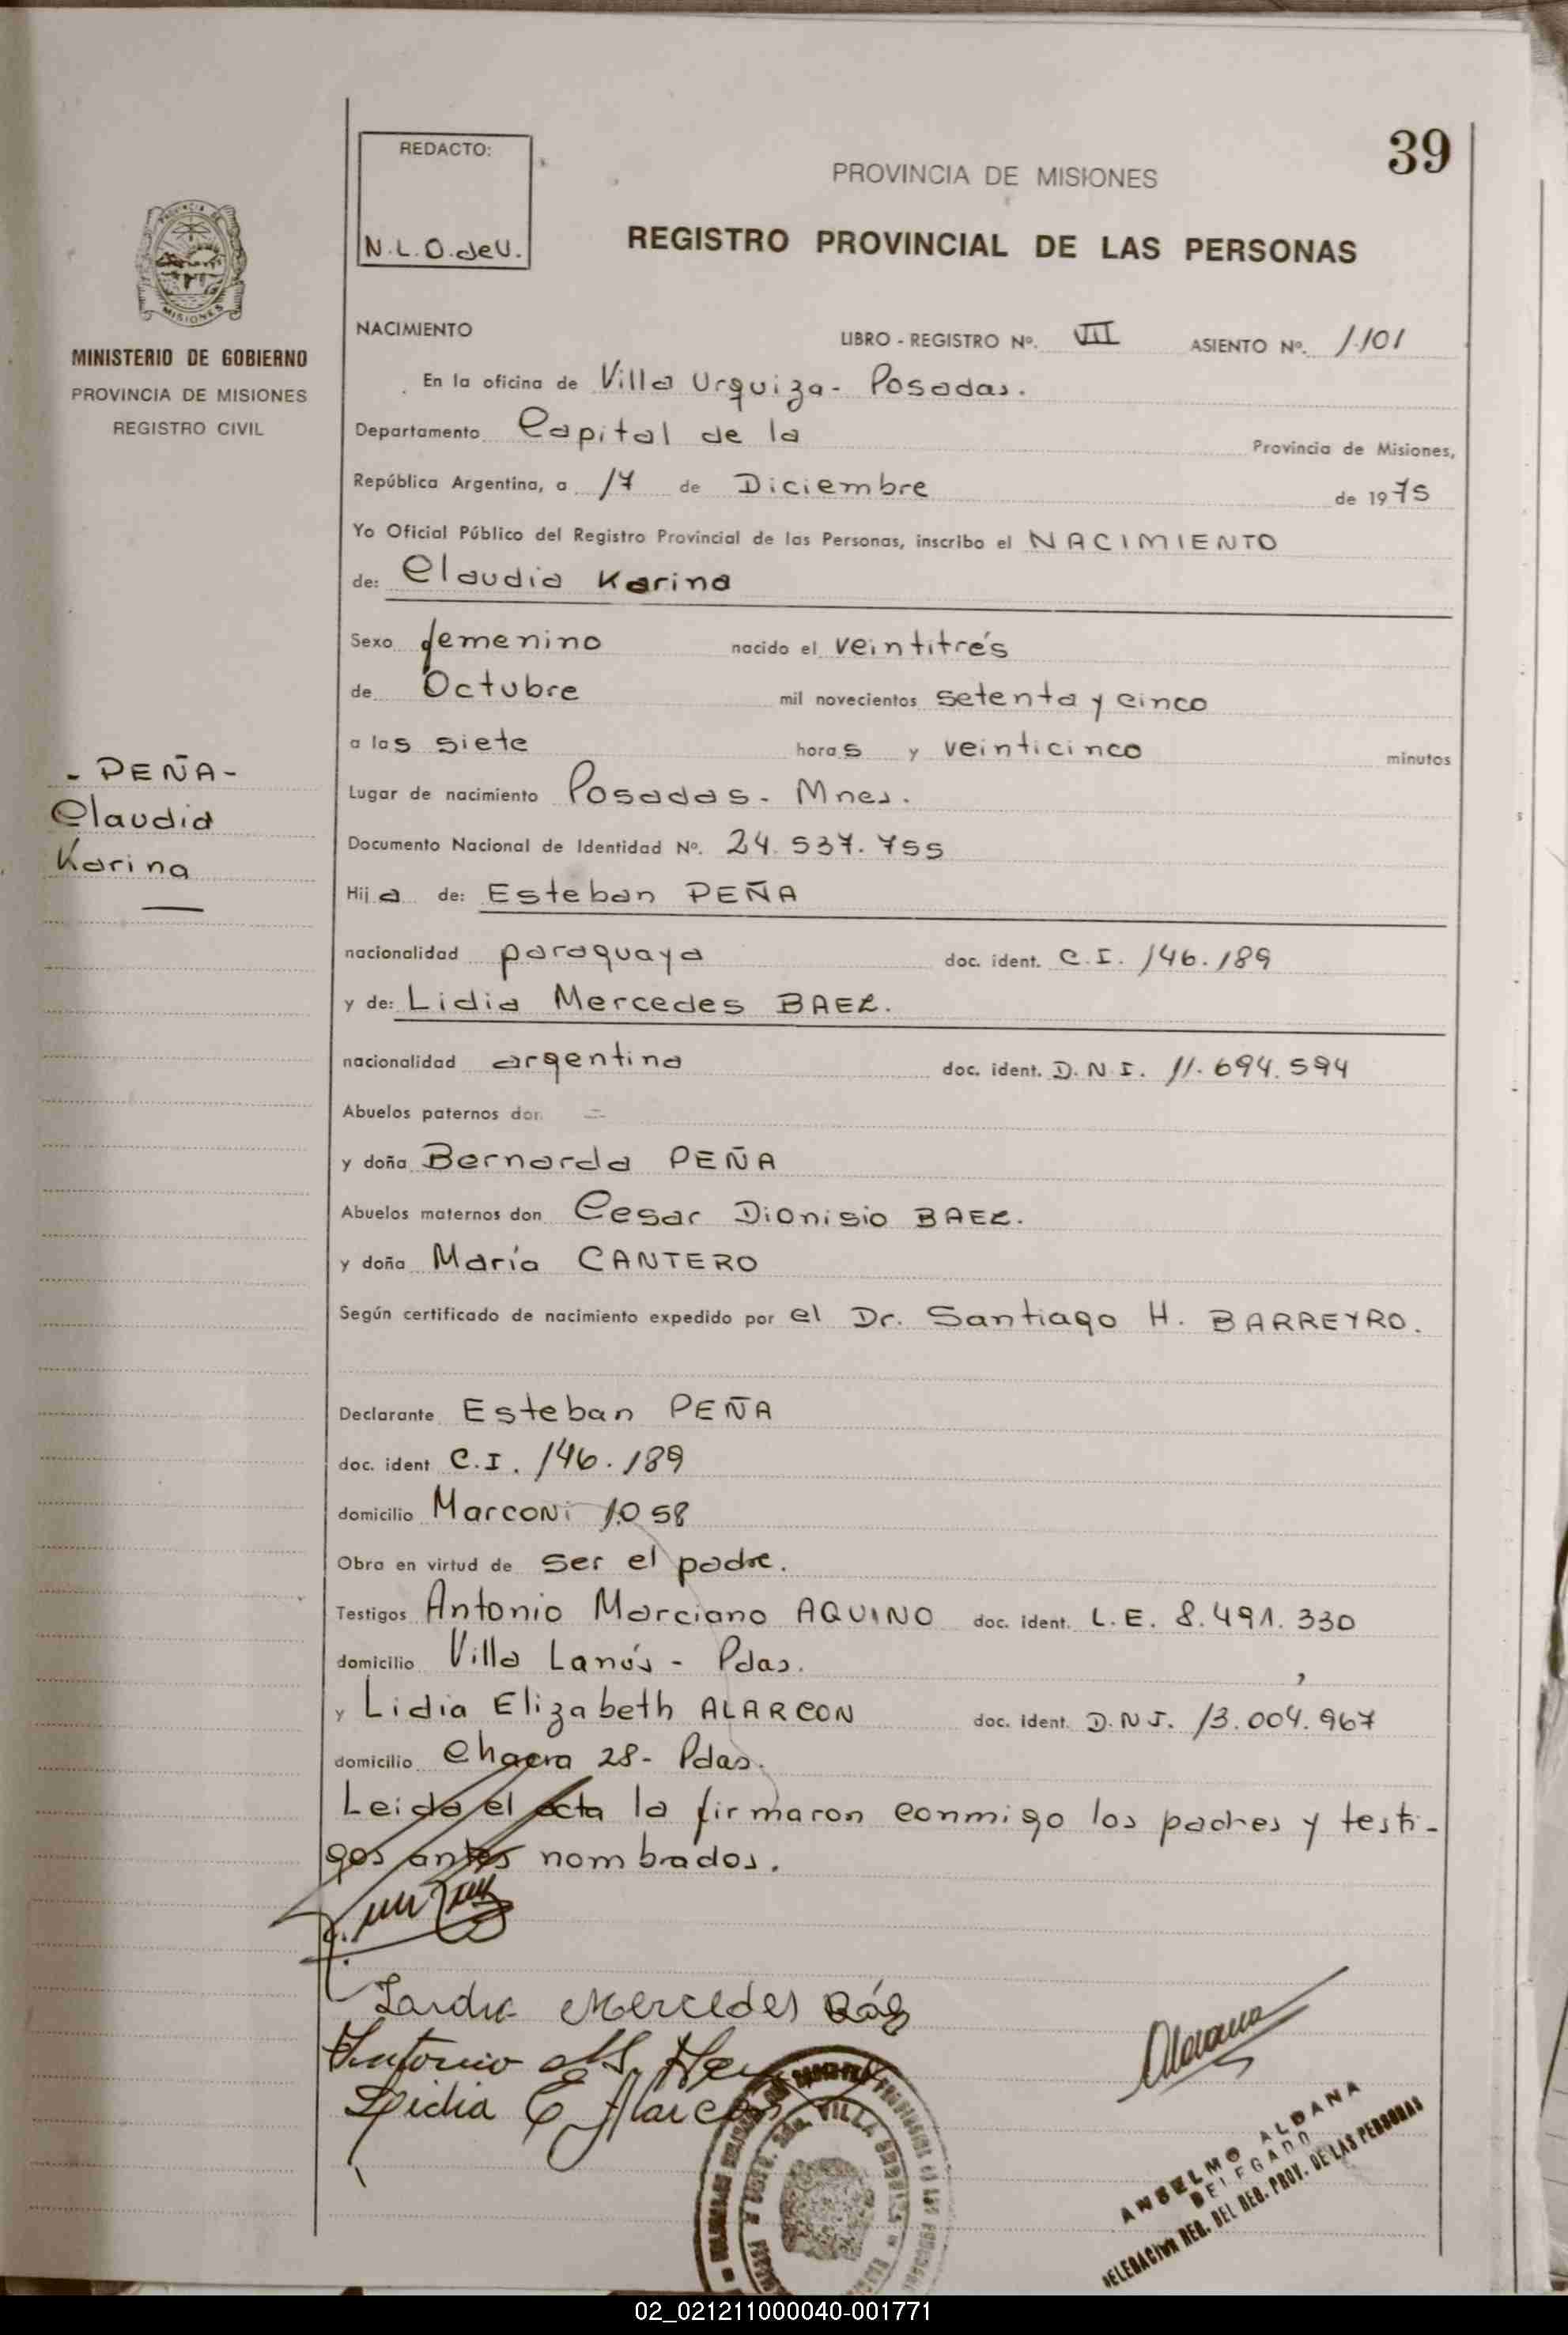 39
REDACTO:
N.L.O. de V.
PROVINCIA DE MISIONES
REGISTRO PROVINCIAL DE LAS PERSONAS
MISIONES
MINISTERIO DE GOBIERNO
PROVINCIA DE MISIONES
REGISTRO CIVIL
NACIMIENTO LIBRO - REGISTRO Nº. VII ASIENTO Nº. 1.101
En la oficina de Villa Urquiza - Posadas.
Departamento Capital de la Provincia de Misiones,
República Argentina, a 17 de Diciembre de 1975
Yo Oficial Público del Registro Provincial de las Personas, inscribo el NACIMIENTO
de: Claudia Karina
Sexo femenino nacido el veintitrés
de Octubre mil novecientos setenta y cinco
a las siete horas y veinticinco minutos
- PEÑA -
Claudia
Karina
Lugar de nacimiento Posadas - Mnes.
Documento Nacional de Identidad Nº. 24.537.755
Hija de: Esteban PEÑA
nacionalidad paraguaya doc. ident. C.I. 146.189
y de: Lidia Mercedes BAEZ.
nacionalidad argentina doc. ident. D.N.I. 11.694.594
Abuelos paternos don =
y doña Bernarda PEÑA
Abuelos maternos don Cesar Dionisio BAEZ.
y doña María CANTERO
Según certificado de nacimiento expedido por el Dr. Santiago H. BARREYRO.
Declarante Esteban PEÑA
doc. ident C.I. 146.189
domicilio Marconi 1.058
Obra en virtud de ser el padre.
Testigos Antonio Marciano AQUINO doc. ident. L.E. 8.491.330
domicilio Villa Lanús - Pdas.
y Lidia Elizabeth ALARCON doc. ident. D.N.I. 13.004.967
domicilio Chacra 28 - Pdas.
Leida el acta la firmaron conmigo los padres y testi-
gos antes nombrados.
Mercedes Báez
Antonio M.
Lidia E Alarcon
Aldana
VILLA URQUIZA
ANSELMO ALDANA
DELEGADO
DELEGACION REG. DEL REG. PROV. DE LAS PERSONAS
02_021211000040-001771